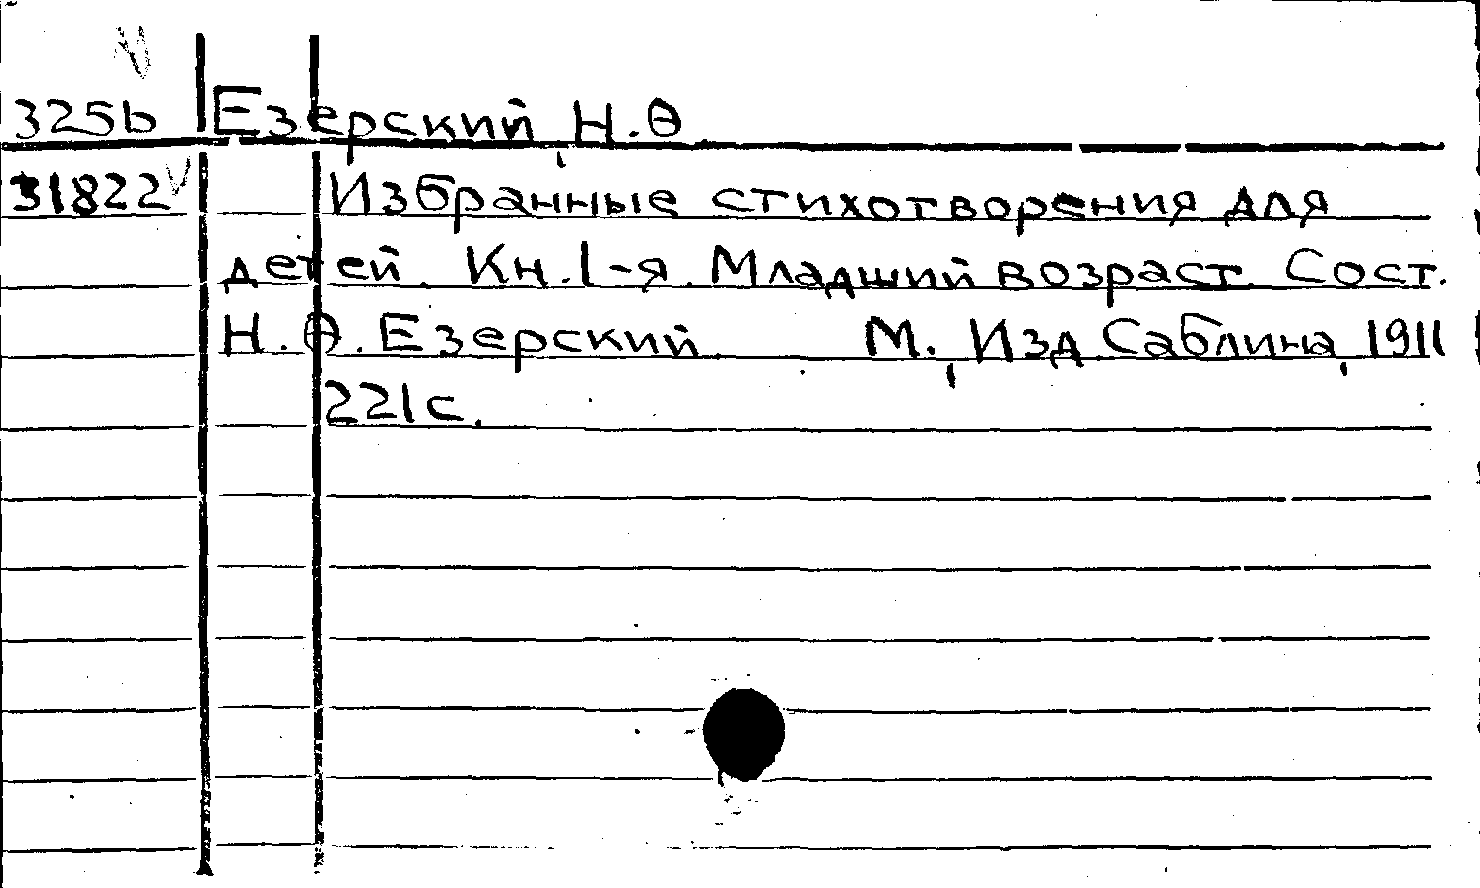 325b Езерский, Н.Ѳ
31822 Избранные стихотворения для
детей. Кн.1-я. Младший возраст. Сост.
Н.Ѳ. Езерский. М., Изд. Саблина, 1911
221с.